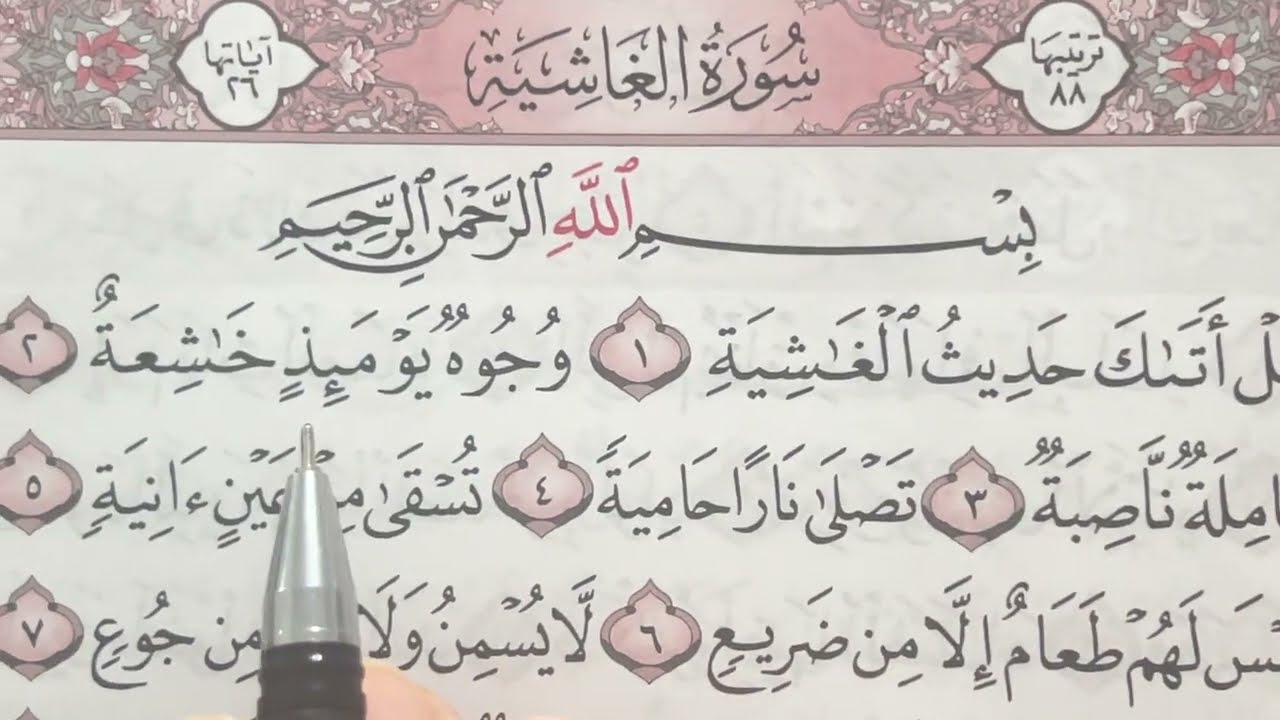 ترتيبها ٨٨
سُورَةُ الغَاشِيَةِ
آياتها ٢٦
بِسْمِ ٱللَّهِ ٱلرَّحْمَٰنِ ٱلرَّحِيمِ
أَتَىٰكَ حَدِيثُ ٱلْغَٰشِيَةِ ١ وُجُوهٌ يَوْمَئِذٍ خَٰشِعَةٌ ٢
نَّاصِبَةٌ ٣ تَصْلَىٰ نَارًا حَامِيَةً ٤ تُسْقَىٰ ءَانِيَةٍ ٥
لَهُمْ طَعَامٌ إِلَّا مِن ضَرِيعٍ ٦ لَّا يُسْمِنُ وَلَا مِن جُوعٍ ٧